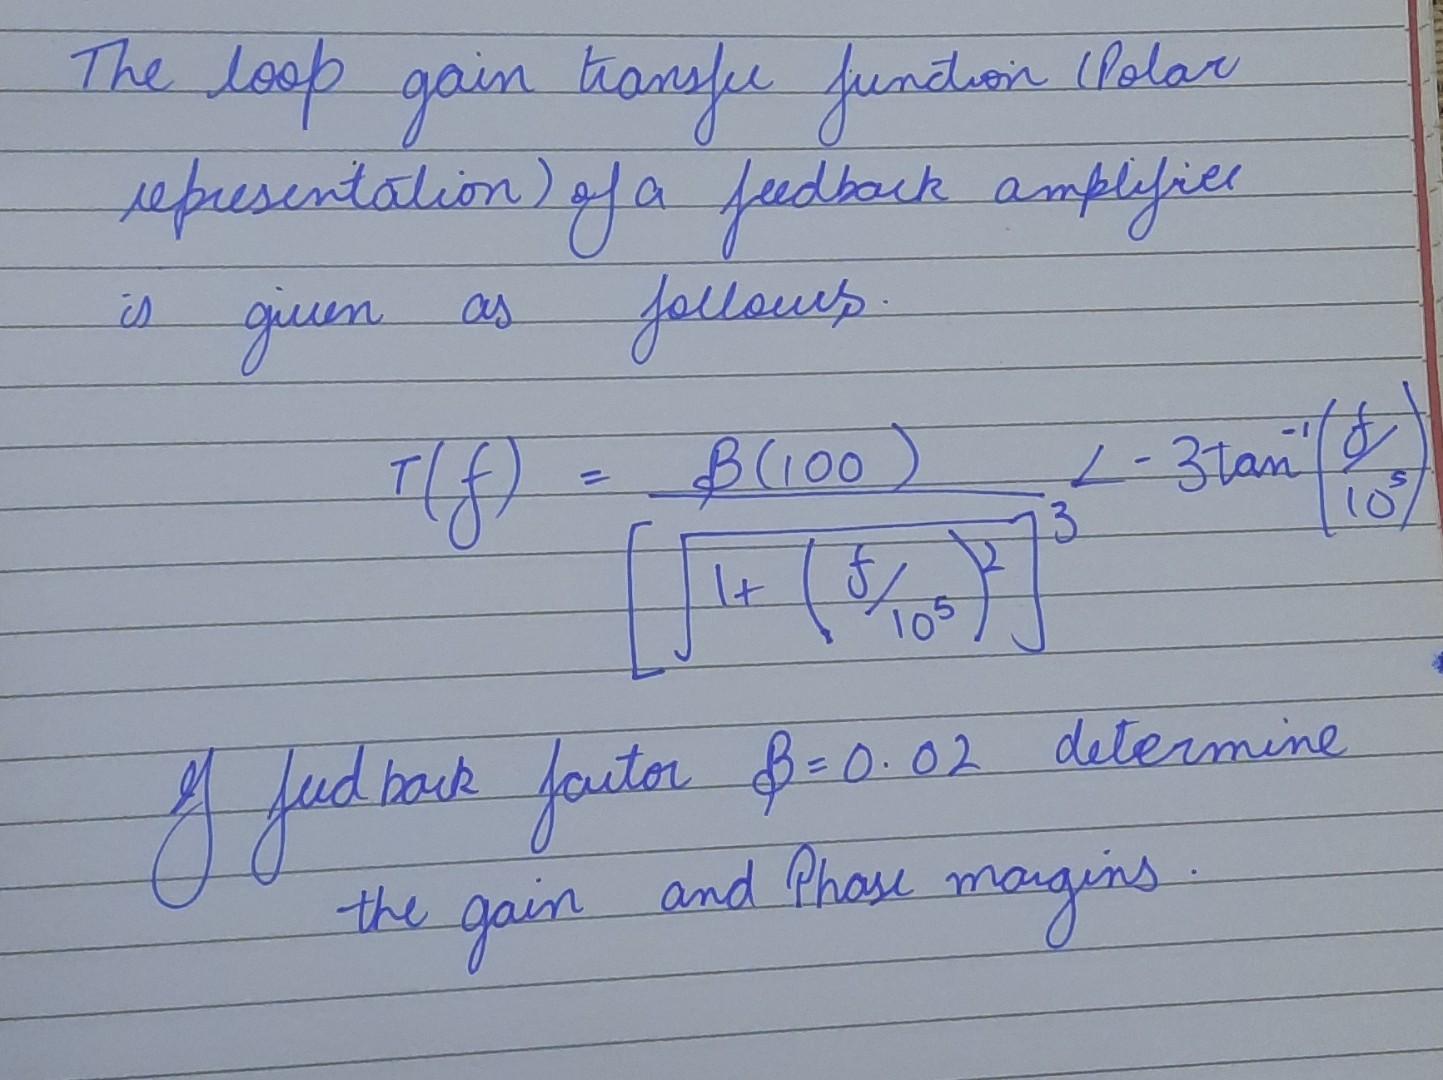 The loop gain transfer function (Polar
representation) of a feedback amplifier
is given as follows.
T(f) = β(100) / [√(1+(f/10⁵)²)]³ ∠-3tan⁻¹(f/10⁵)
If feedback factor β=0.02 determine
the gain and Phase margins.